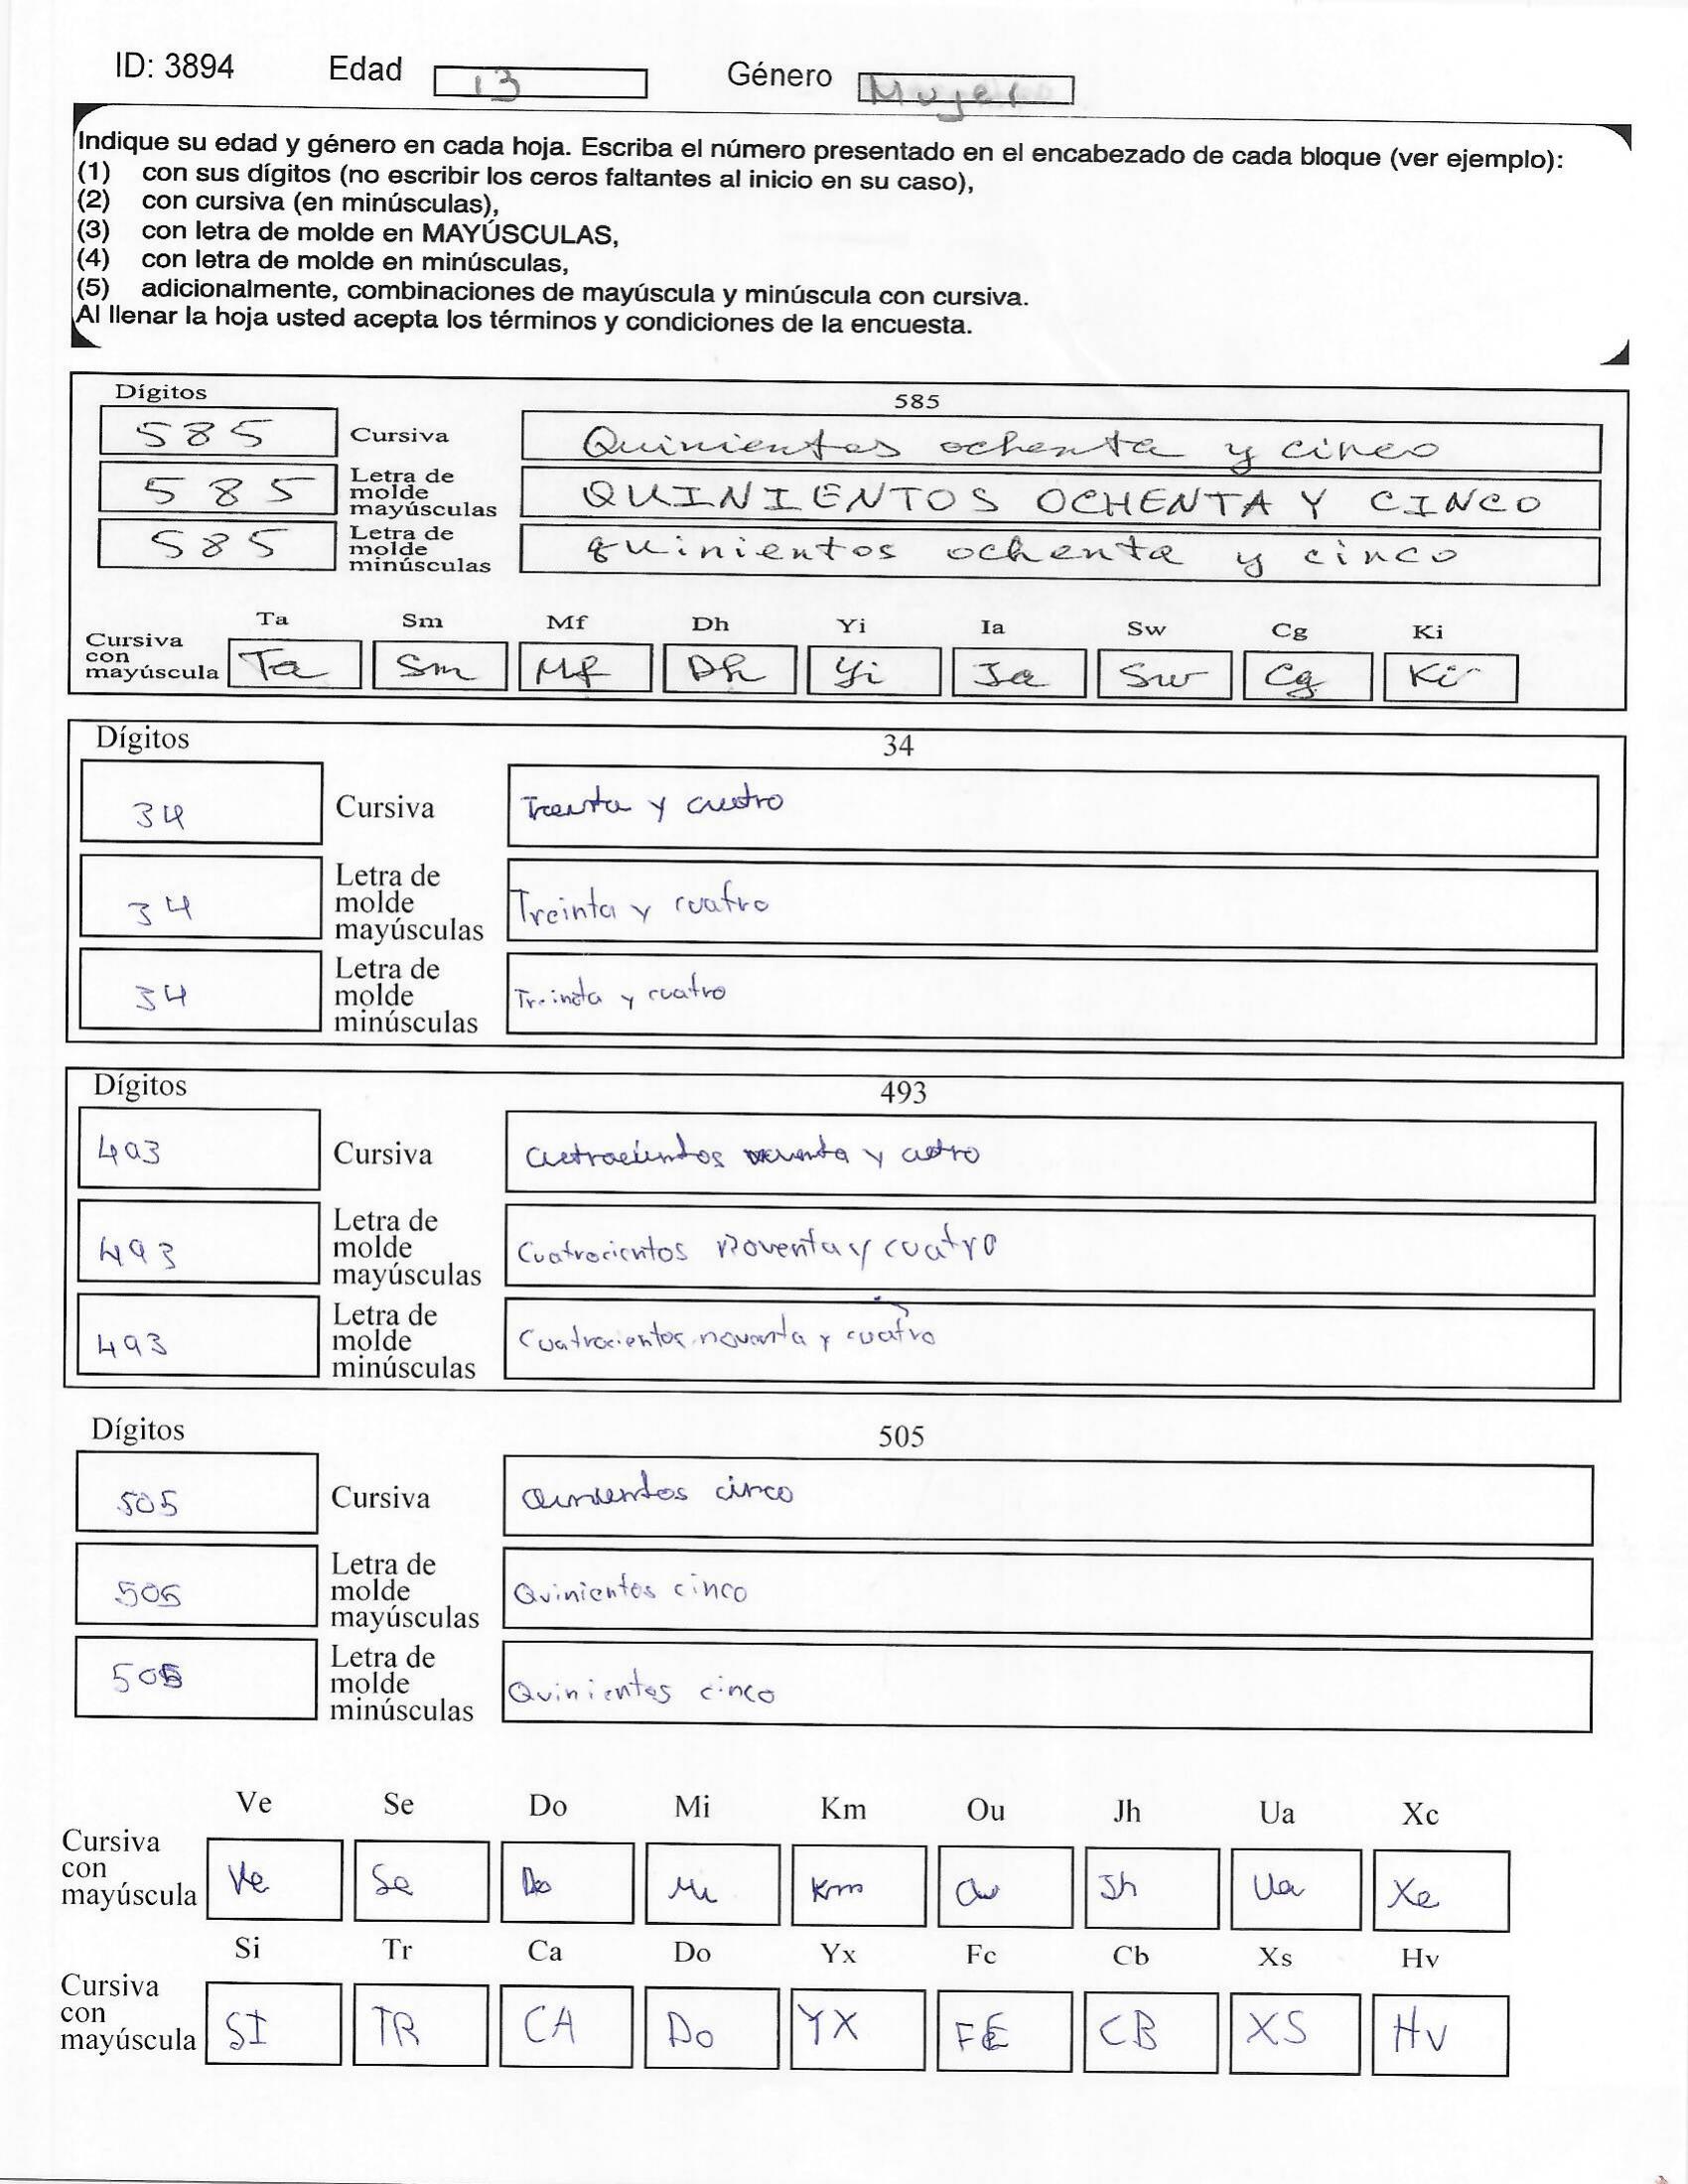 ID: 3894 Edad 13 Género Mujer
Indique su edad y género en cada hoja. Escriba el número presentado en el encabezado de cada bloque (ver ejemplo):
(1) con sus dígitos (no escribir los ceros faltantes al inicio en su caso),
(2) con cursiva (en minúsculas),
(3) con letra de molde en MAYÚSCULAS,
(4) con letra de molde en minúsculas,
(5) adicionalmente, combinaciones de mayúscula y minúscula con cursiva.
Al llenar la hoja usted acepta los términos y condiciones de la encuesta.
Dígitos 585
585 Cursiva Quinientos ochenta y cinco
585 Letra de molde mayúsculas QUINIENTOS OCHENTA Y CINCO
585 Letra de molde minúsculas quinientos ochenta y cinco
Ta Sm Mf Dh Yi Ia Sw Cg Ki
Cursiva con mayúscula Ta Sm Mf Dh Yi Ia Sw Cg Ki
Dígitos 34
34 Cursiva y
34 Letra de molde mayúsculas Treinta y cuatro
34 Letra de molde minúsculas y cuatro
Dígitos 493
493 Cursiva y
493 Letra de molde mayúsculas Cuatrocientos Noventa y cuatro
493 Letra de molde minúsculas Cuatrocientos noventa y cuatro
Dígitos 505
505 Cursiva cinco
505 Letra de molde mayúsculas Quinientos cinco
505 Letra de molde minúsculas Quinientos cinco
Ve Se Do Mi Km Ou Jh Ua Xc
Cursiva con mayúscula Ve Se Do Mi Km Ou Jh Ua Xe
Si Tr Ca Do Yx Fc Cb Xs Hv
Cursiva con mayúscula SI TR CA Do YX FE CB XS Hv